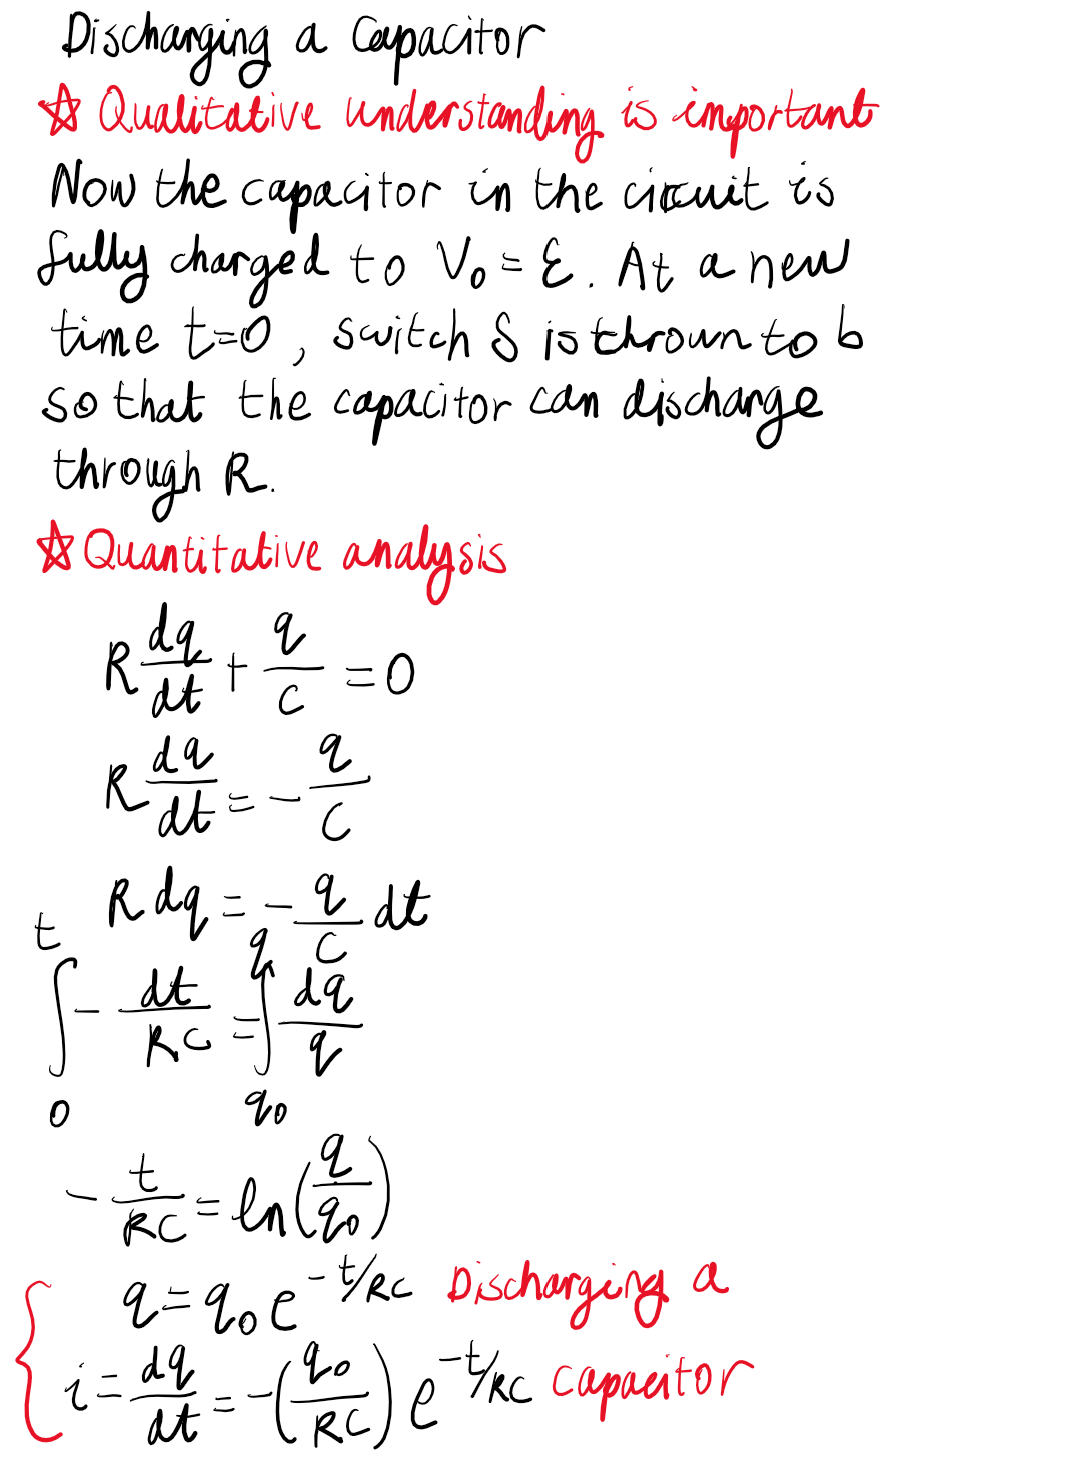 Discharging a Capacitor
☆ Qualitative understanding is important
Now the capacitor in the circuit is
fully charged to V₀ = ℰ. At a new
time t=0, switch S is thrown to b
so that the capacitor can discharge
through R.
☆ Quantitative analysis
R dq/dt + q/C = 0
R dq/dt = - q/C
R dq = - q/C dt
∫₀ᵗ - dt/RC = ∫_{q₀}^{q} dq/q
- t/RC = ln(q/q₀)
q = q₀ e^{-t/RC} Discharging a
i = dq/dt = -(q₀/RC) e^{-t/RC} capacitor